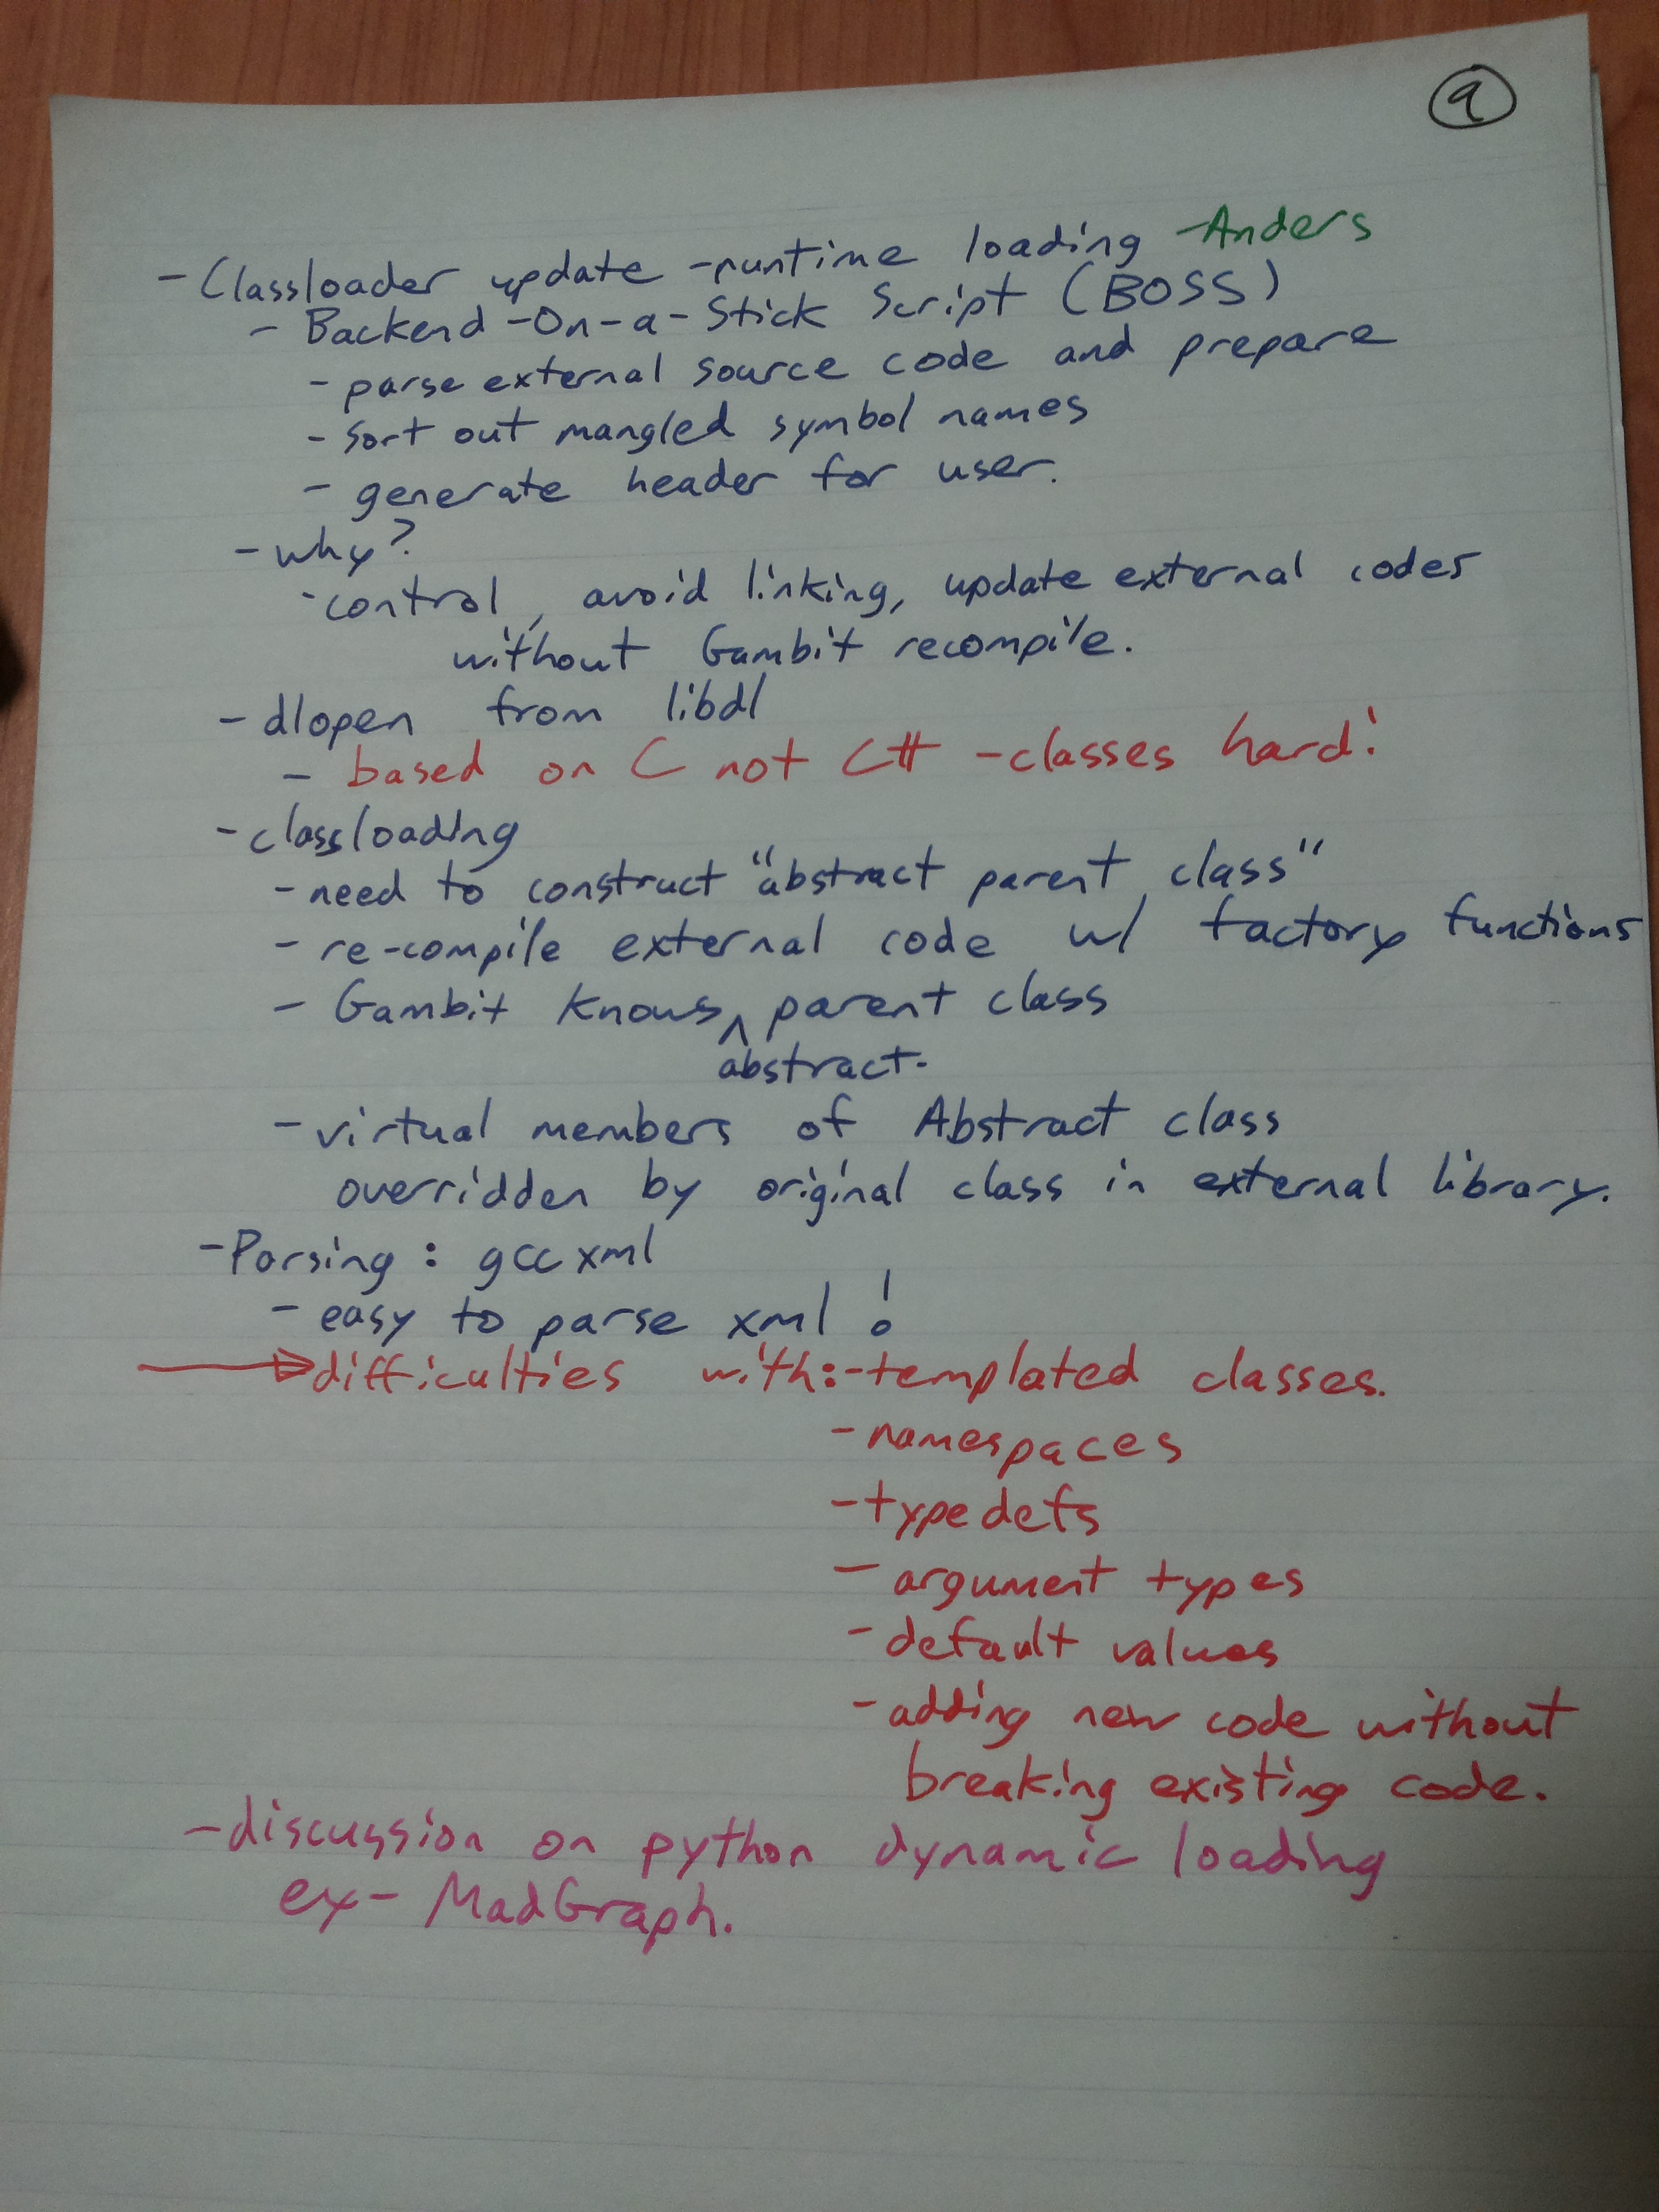 9
- Classloader update - runtime loading - Anders
- Backend-On-a-Stick Script (BOSS)
- parse external source code and prepare
- sort out mangled symbol names
- generate header for user.
- why?
- control, avoid linking, update external codes
without Gambit recompile.
- dlopen from libdl
- based on C not C++ - classes hard!
- classloading
- need to construct "abstract parent class"
- re-compile external code w/ factory functions
- Gambit knows ^ parent class
abstract.
- virtual members of Abstract class
overridden by original class in external library.
- Parsing: gccxml
- easy to parse xml!
→ difficulties with: - templated classes.
- namespaces
- typedefs
- argument types
- default values
- adding new code without
breaking existing code.
- discussion on python dynamic loading
ex - MadGraph.